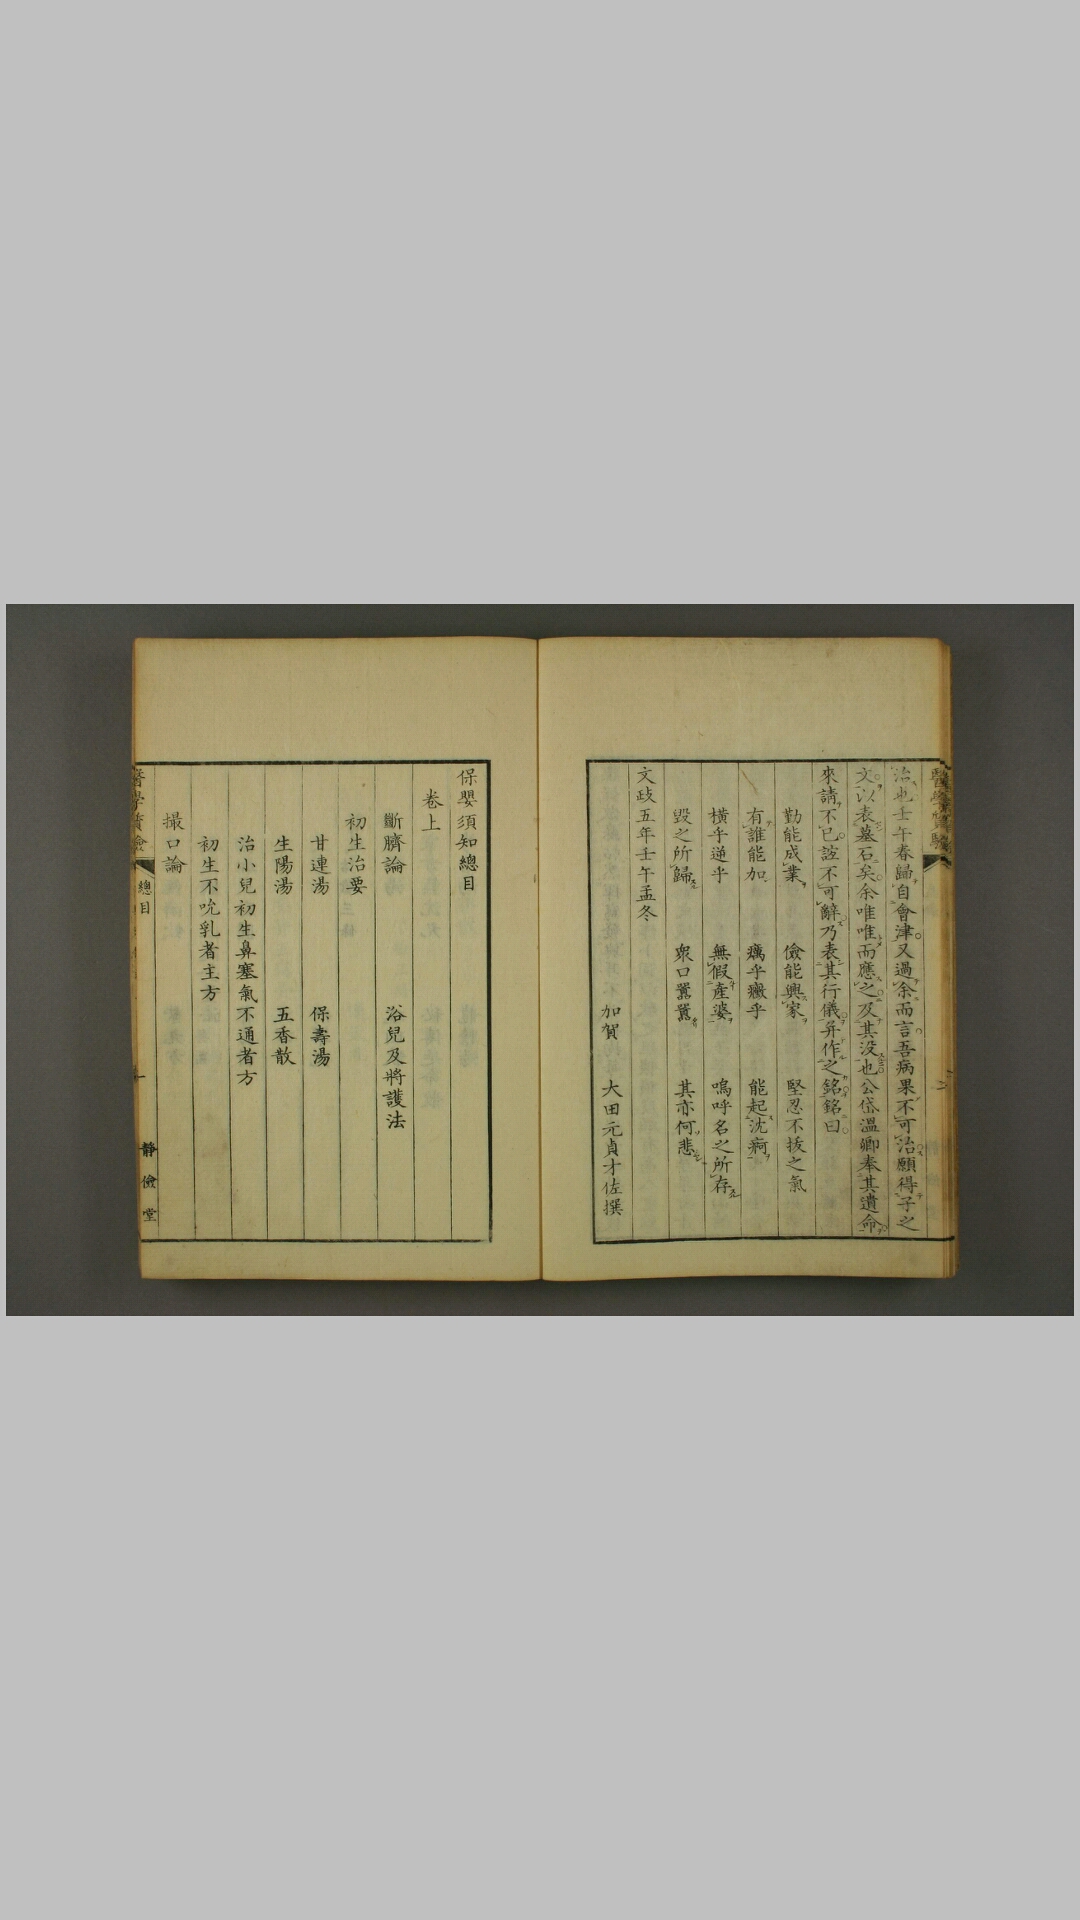 治也壬午春歸自會津又過余而言吾病果不可治願得子之
文以表墓石矣余唯唯而應之及其没也公岱溫卿奉其遺命
來請不已誼不可辭乃表其行儀并作之銘銘曰
勤能成業 儉能興家 堅忍不拔之氣
有誰能加 癘乎癥乎 能起沈痾
橫乎逆乎 無假產婆 嗚呼名之所存
毀之所歸 衆口囂囂 其亦何悲
文政五年壬午孟冬
加賀 大田元貞才佐撰
保嬰須知總目
卷上
斷臍論 浴兒及將護法
初生治要
甘連湯 保壽湯
生陽湯 五香散
治小兒初生鼻塞氣不通者方
初生不吮乳者主方
撮口論
總目
一
靜儉堂